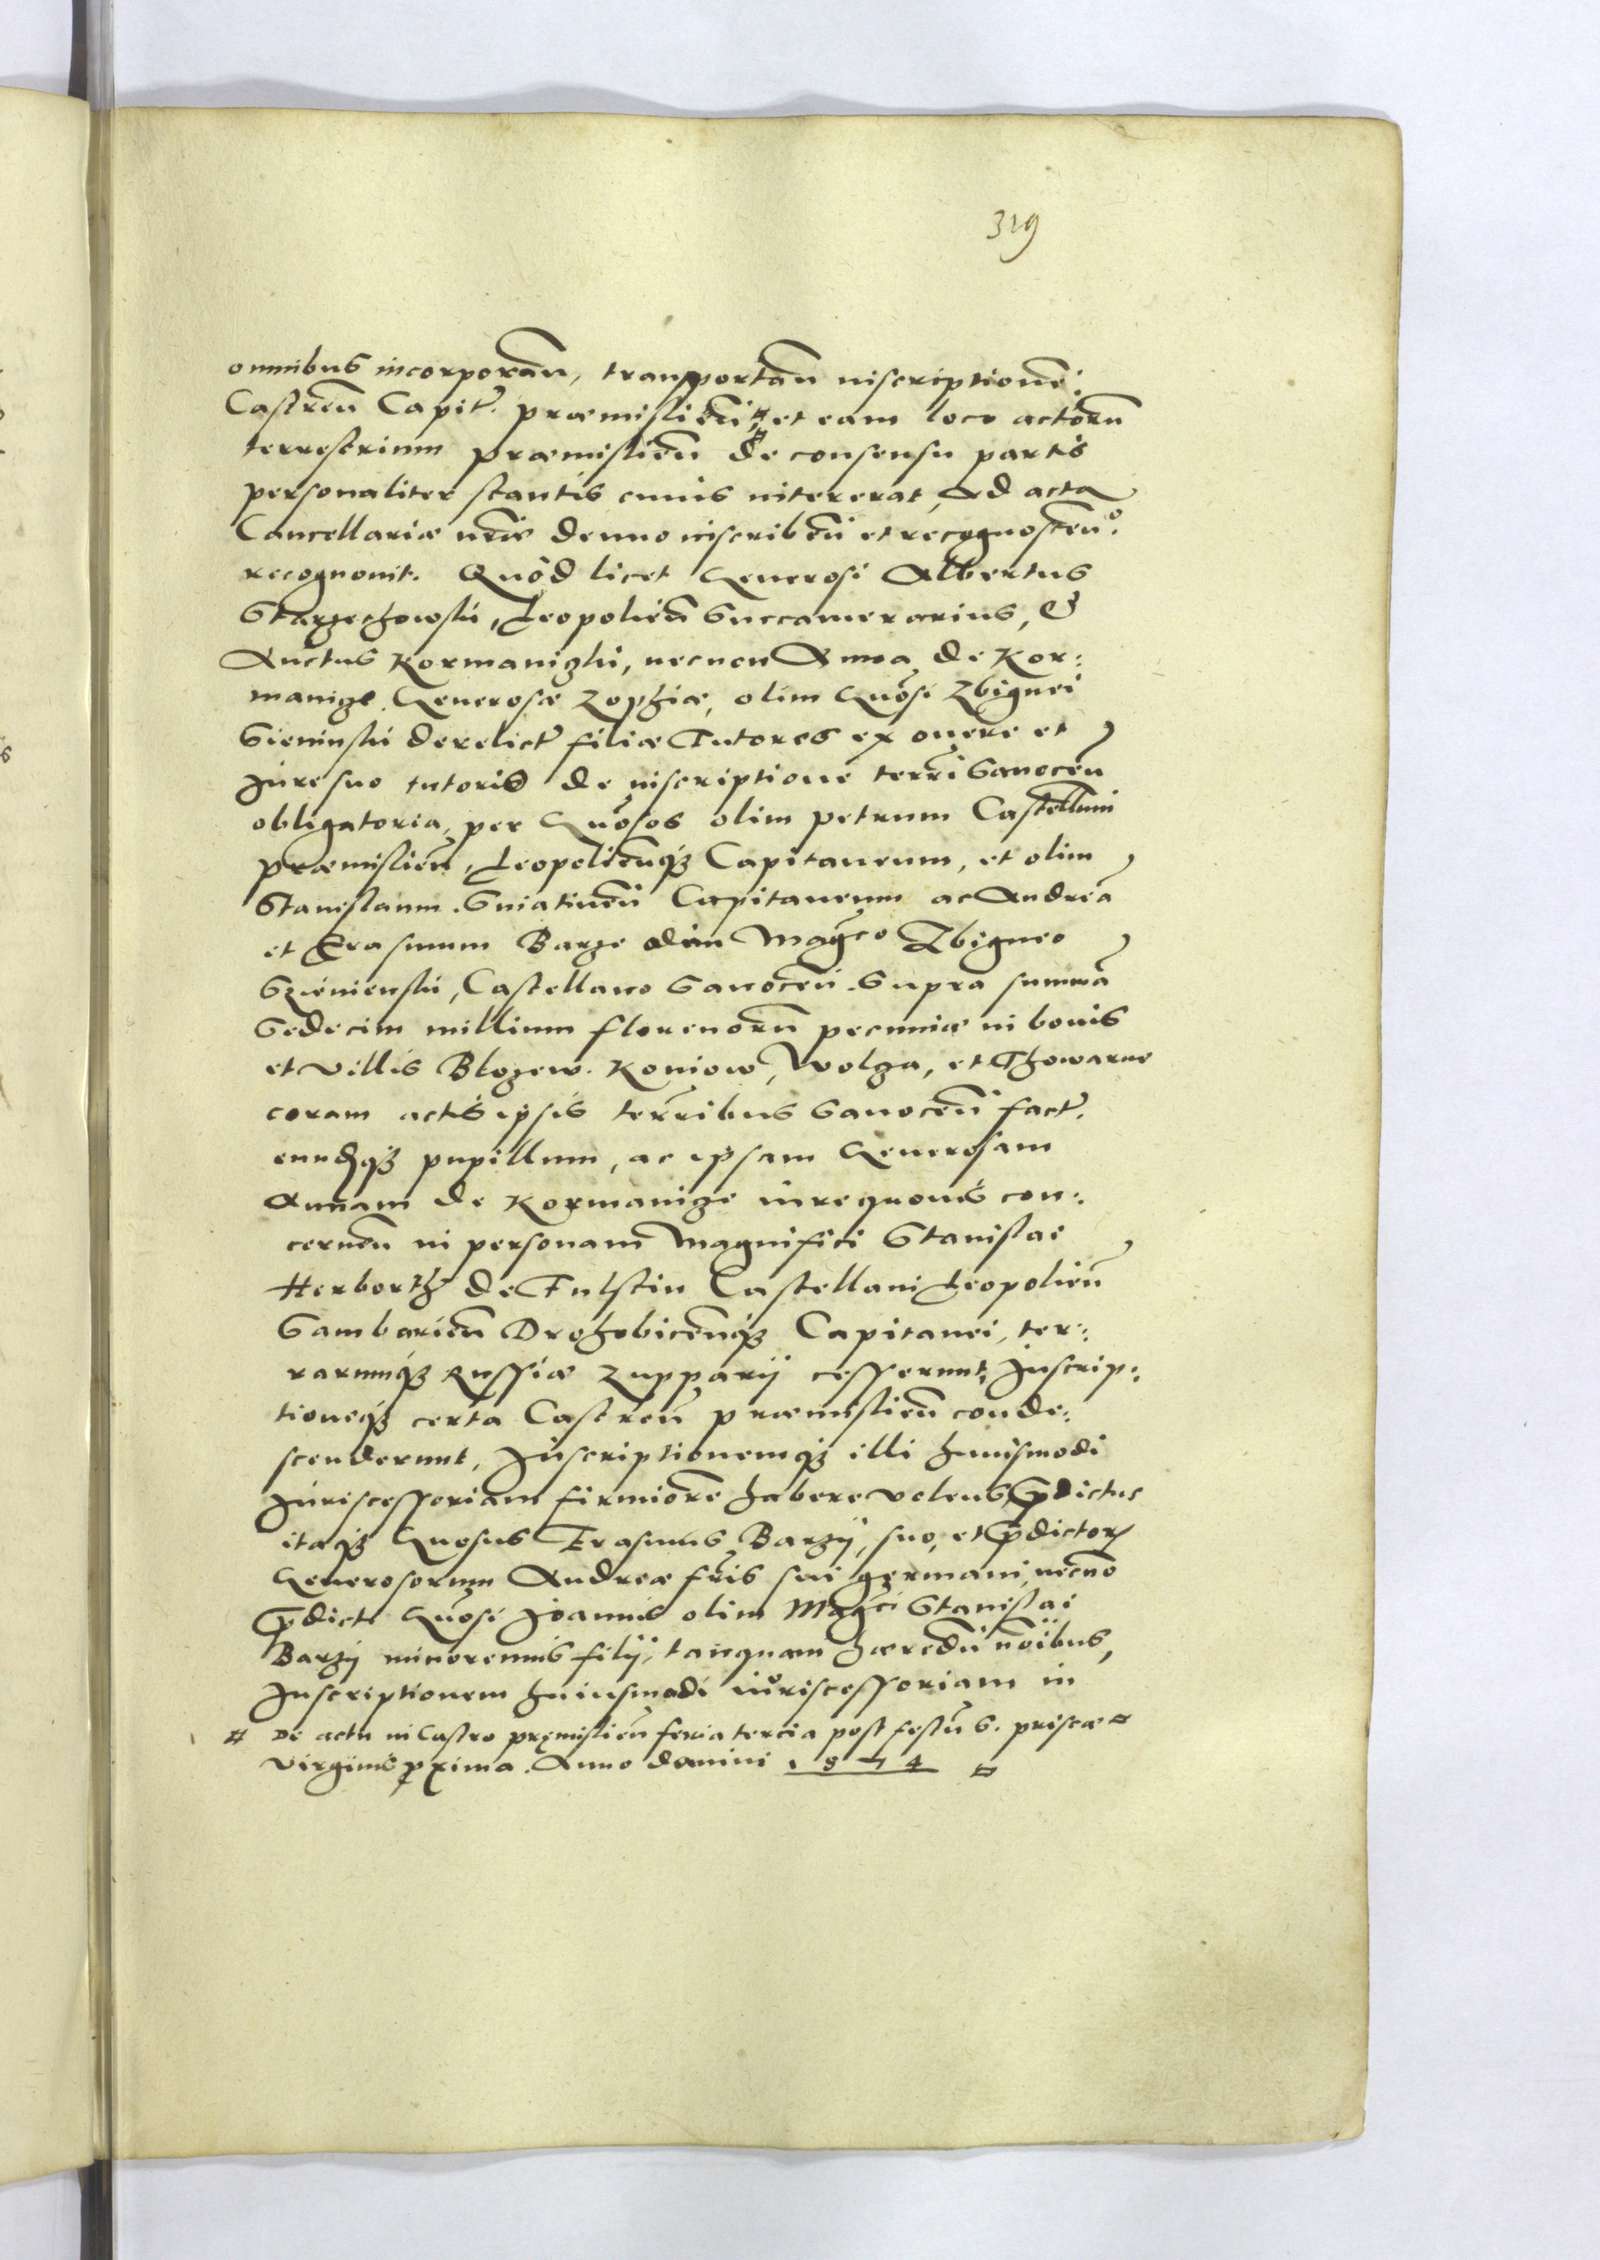 319
omnibus incorporan, transportan inscriptione:
Castren Capit. præmislien # et eam loco actoru
terrestrium præmislien de consensu partis
personaliter stantis cuius intererat, ad acta
Cancellariæ nræ denuo inscriben et recognoscen.
recognouit. Quod licet Generosi Albertus
Starzechowski, Leopolien Succamerarius, &
Auctus Kormaniczki, necnon Anna de Kor:
manize Generosæ Zophiæ, olim Gnosi Zbignei
Sieninski derelict filiæ Tutores ex onere et
Jure suo tutorio de inscriptione terri Sanocen
obligatoria, per Gnosos olim Petrum Castellum
præmislien, Leopolienq3 Capitaneum, et olim
Stanislaum Sniatinen Capitaneum ac Andreā
et Erasmum Barze olim Magco Zbigneo
Szienienski, Castellano Sanocen. Supra summā
Sedecim millium florenoru pecuniæ in bonis
et villis Blozew. Koniow, Wolza, et Thowarne
coram actis ipsis terrribus Sanocen fact.
eundq3 pupillum, ac ipsam Generosam
Annam de Kormanize iure quouis con:
cernen in personam Magnifici Stanislai
Herborth de Fulstin Castellani Leopolien
Samborien Drohobicenq3 Capitanei, ter:
rarumq3 Russiæ Zupparij cesserunt, Inscrip:
tioneq3 certa Castren præmislien conde:
scenderunt, Inscriptionemq3 illi huiusmodi
Juriscessoriam firmiore habere volens, pdictus
itaq3 Gnosus Erasmus Barzij, suo, et pdictor
Generosorum Andreæ fris sui germani, necno
pdicti Gnosi Joannis olim Magci Stanislai
Barzij minorennis filij, tanquam hæredu noibus,
Inscriptionem huiusmodi iuriscessoriam in
# De actu in Castro præmislien feria tercia post festu S. priscæ
virginis pxima. Anno domini 1574